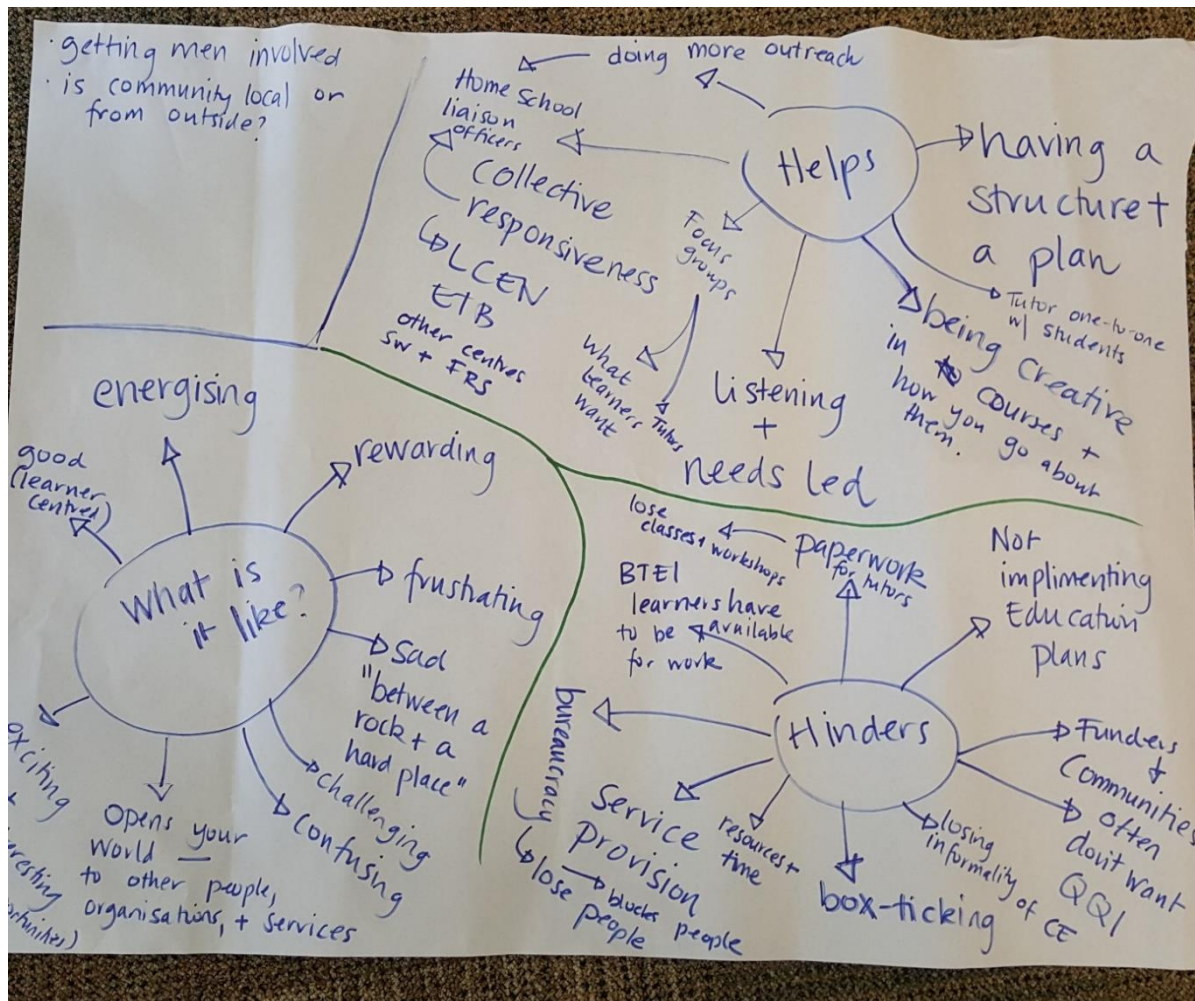 · getting men involved
· is community local or
from outside?
doing more outreach
Home School
liaison
officers
Collective
responsiveness
LCEN
ETB
other centres
SW + FRS
Helps
having a
structure +
a plan
Tutor one-to-one
w/ students
being creative
in courses +
how you go about
them.
Focus
groups
What
learners
want
Tutors
listening
+
needs led
energising
good
(learner
centred)
rewarding
What is
it like?
frustrating
sad
"between a
rock + a
hard place"
challenging
confusing
Opens your
world
to other people,
organisations, + services
exciting
Hinders
paperwork
for tutors
lose
classes + workshops
BTEI
learners have
to be available
for work
Not
implimenting
Education
plans
bureaucracy
lose
people
Service
Provision
blocks people
resources +
time
box-ticking
losing
informality of CE
Funders
Communities
often
don't want
QQI